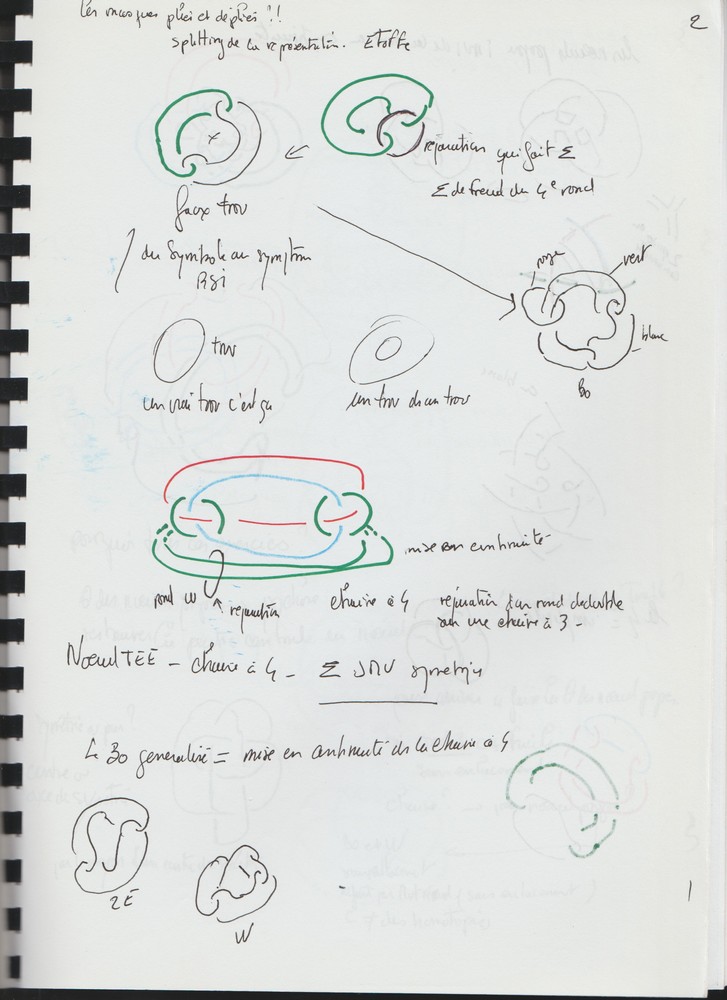 Les masques pliés et dépliés !!
2
splitting de la représentation. Etoffe
réparation qui fait Σ
Σ de freud du 4e rond
faux trou
du Symbole au symptôme
RSI
rose
vert
blanc
Bo
trou
un vrai trou c'est ça
un trou dans un trou
mise en continuité
rond
réparation
chaine à 4
réparation d'un rond dédouble
dans une chaine à 3 -
Noeud TEE - chaine à 4 - Σ
L Bo généralisé = mise en continuité de la chaine à 4
2E
W
1